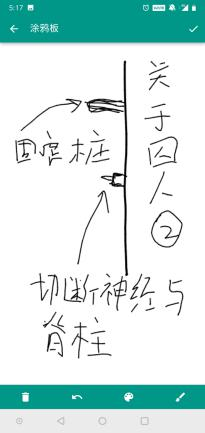 5:17
涂鸦板
关于囚人②
固定桩
切断神经与
脊柱